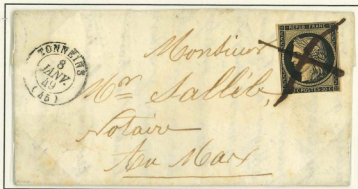 TONNEINS
8
JANV.
49
(45)
REPUB. FRANC.
POSTES
Monsieur
Mr
Notaire
Au Mas